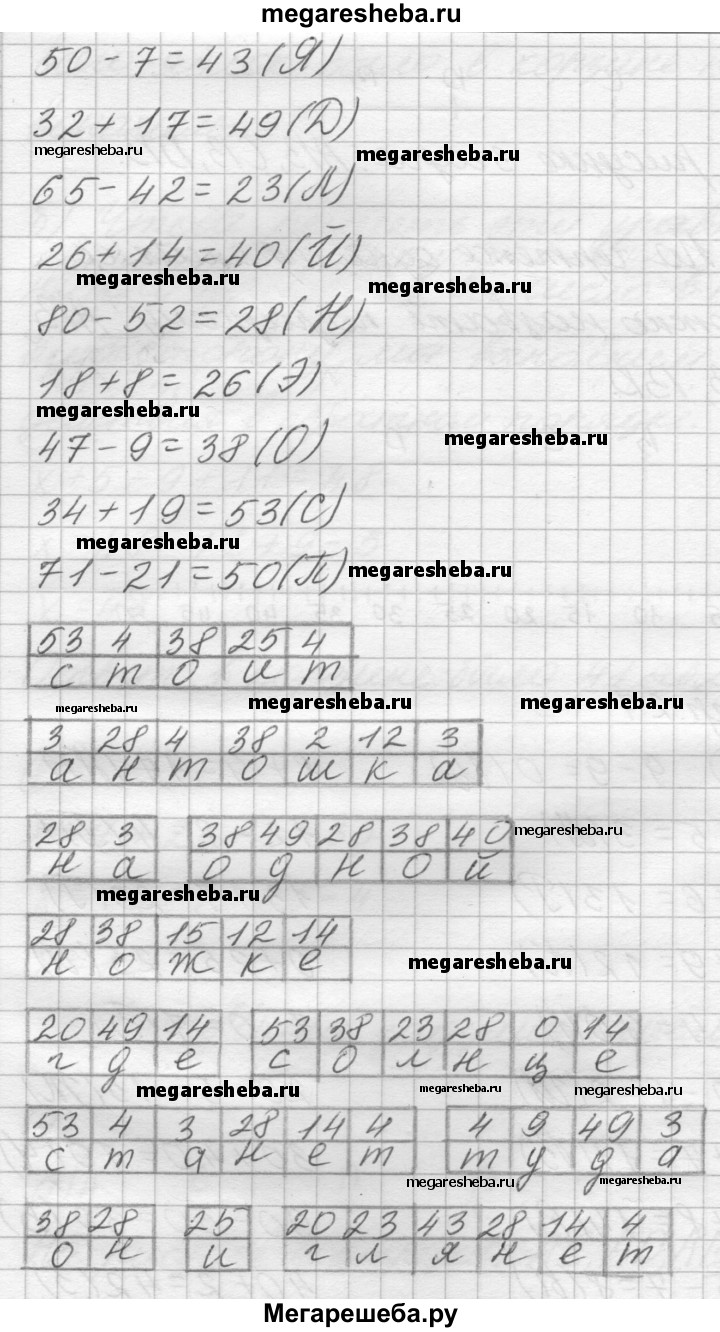 megaresheba.ru
50 - 7 = 43 (Я)
32 + 17 = 49 (Д)
megaresheba.ru megaresheba.ru
65 - 42 = 23 (Л)
26 + 14 = 40 (Й)
megaresheba.ru megaresheba.ru
80 - 52 = 28 (Н)
18 + 8 = 26 (Э)
megaresheba.ru
47 - 9 = 38 (О) megaresheba.ru
34 + 19 = 53 (С)
megaresheba.ru
71 - 21 = 50 (П) megaresheba.ru
53 4 38 25 4
с т о и т
megaresheba.ru megaresheba.ru megaresheba.ru
3 28 4 38 2 12 3
а н т о ш к а
28 3 38 49 28 38 40 megaresheba.ru
н а о д н о й
megaresheba.ru
28 38 15 12 14
н о ж к е megaresheba.ru
20 49 14 53 38 23 28 0 14
г д е с о л н ц е
megaresheba.ru megaresheba.ru megaresheba.ru
53 4 3 28 14 4 4 9 49 3
с т а н е т т у д а
megaresheba.ru megaresheba.ru
38 28 25 20 23 43 28 14 4
о н и г л я н е т
Мегарешеба.ру